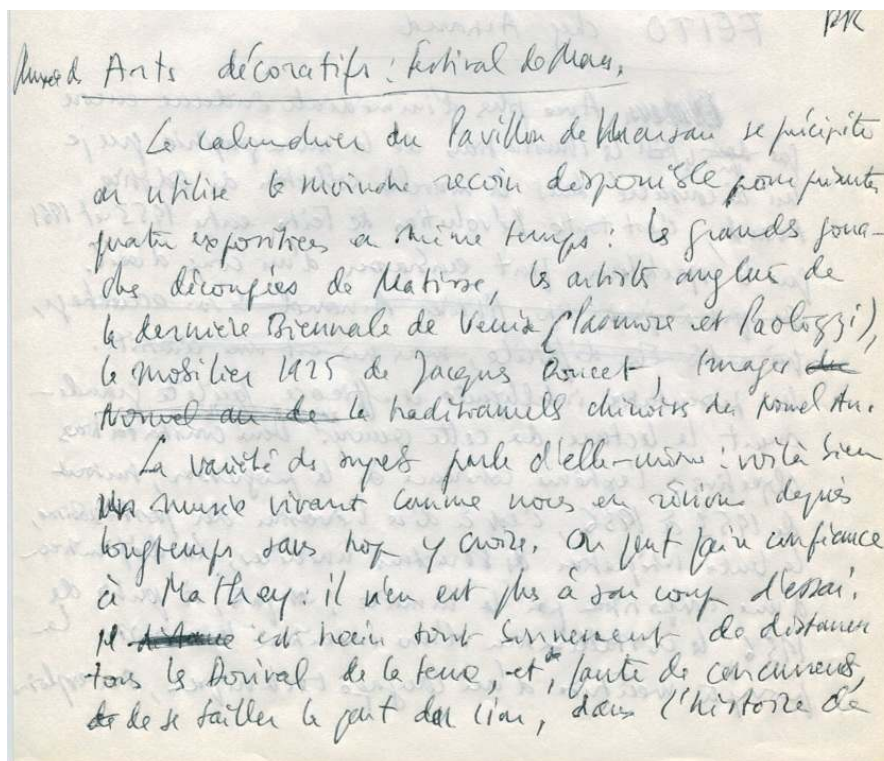 PR
Musée des Arts décoratifs : Festival de Mars.
Le calendrier du Pavillon de Marsan se précipite
on utilise le moindre recoin disponible pour présenter
quatre expositions en même temps : les grands goua-
ches découpées de Matisse, les artistes anglais de
la dernière Biennale de Venise (Pasmore et Paolozzi),
le mobilier 1925 de Jacques Doucet, Images de
Nouvel an de le traditionnels chinois du Nouvel An.
La variété des sujets parle d'elle-même : voilà bien
un musée vivant comme nous en rêvions depuis
longtemps sans trop y croire. On peut faire confiance
à Mathey : il n'en est plus à son coup d'essai.
Il distance est en train tout bonnement de distancer
tous les Dorival de la terre, et, faute de concurrents,
de de se tailler la part du lion, dans l'histoire de